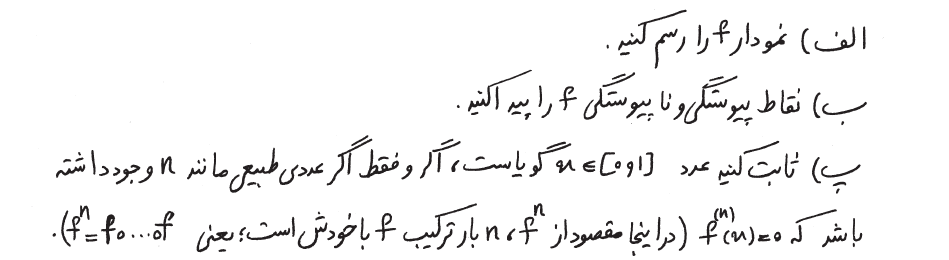 الف) نمودار f را رسم کنید.
ب) نقاط پیوستگی و ناپیوستگی f را پیدا کنید.
پ) ثابت کنید عدد x∈[0,1] گویاست، اگر و فقط اگر عددی طبیعی مانند n وجود داشته
باشد که f⁽ⁿ⁾(x)=0 (در اینجا مقصود از fⁿ، n بار ترکیب f با خودش است؛ یعنی fⁿ=fo...of).